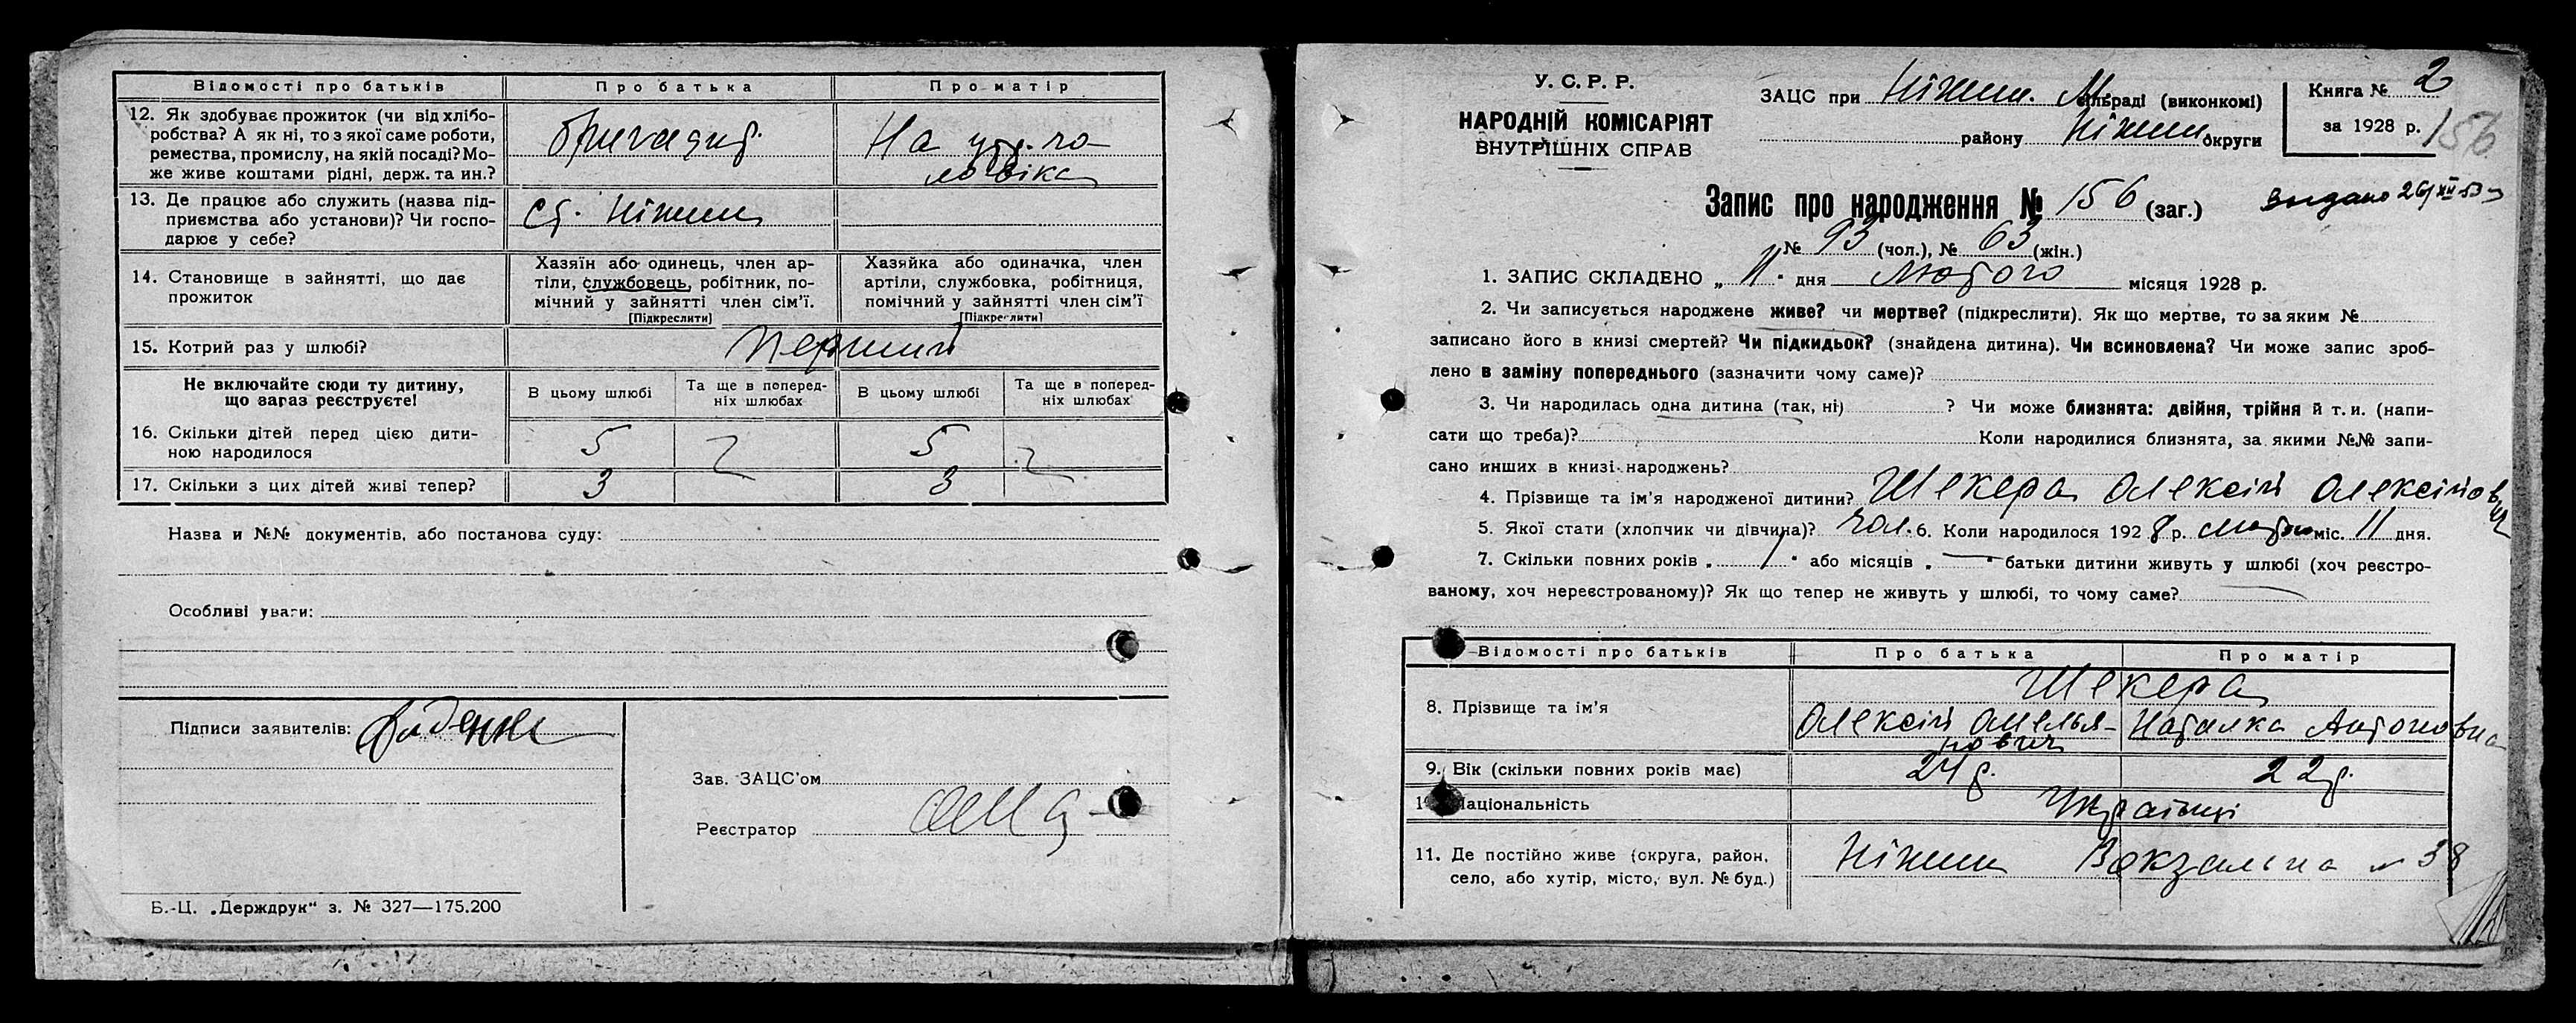 Відомості про батьків | Про батька | Про матір
12. Як здобуває прожиток (чи від хлібо-
робства? А як ні, то з якої саме роботи,
ремества, промислу, на якій посаді? Мо-
же живе коштами рідні, держ. та ин.?
На утр. чо-
ловіка
13. Де працює або служить (назва під-
приємства або установи)? Чи госпо-
дарює у себе?
ст. Ніжин
14. Становище в зайнятті, що дає
прожиток
Хазяїн або одинець, член ар-
тілі, службовець, робітник, по-
мічний у зайнятті член сім'ї.
[Підкреслити]
Хазяйка або одиначка, член
артілі, службовка, робітниця,
помічний у зайнятті член сім'ї
[Підкреслити]
15. Котрий раз у шлюбі?
Перший
Не включайте сюди ту дитину,
що зараз реєструєте!
В цьому шлюбі | Та ще в поперед-
ніх шлюбах | В цьому шлюбі | Та ще в поперед-
ніх шлюбах
16. Скільки дітей перед цією дити-
ною народилося
5 | 5
17. Скільки з цих дітей живі тепер?
3 | 3
Назва и №№ документів, або постанова суду:
Особливі уваги:
Підписи заявителів:
Зав. ЗАЦС'ом
Реєстратор
Б.-Ц. „Держдрук“ з. № 327—175.200
У. С. Р. Р.
НАРОДНІЙ КОМІСАРІЯТ
ВНУТРІШНІХ СПРАВ
ЗАЦС при Ніжин. М. сільраді (виконкомі)
району Ніжин округи
Книга № 2
за 1928 р.
156
Запис про народження № 156 (заг.)
Выдано 26/XII 53
№ 93 (чол.), № 63 (жін.)
1. ЗАПИС СКЛАДЕНО „ 11 “ дня Лютого місяця 1928 р.
2. Чи записується народжене живе? чи мертве? (підкреслити). Як що мертве, то за яким №
записано його в книзі смертей? Чи підкидьок? (знайдена дитина). Чи всиновлена? Чи може запис зроб-
лено в заміну попереднього (зазначити чому саме)?
3. Чи народилась одна дитина (так, ні) ? Чи може близнята: двійня, трійня й т. и. (напи-
сати що треба)? Коли народилися близнята, за якими №№ запи-
сано инших в книзі народжень?
4. Прізвище та ім'я народженої дитини? Шекера Олексій Олексійович
5. Якої стати (хлопчик чи дівчина)? Чол. 6. Коли народилося 1928 р. Лютого міс. 11 дня.
7. Скільки повних років „ 7 “ або місяців „ — “ батьки дитини живуть у шлюбі (хоч реєстро-
ваному, хоч нереєстрованому)? Як що тепер не живуть у шлюбі, то чому саме?
Відомості про батьків | Про батька | Про матір
8. Прізвище та ім'я
Шекера
Олексій Омелья-
нович
Наталка Антоновна
9. Вік (скільки повних років має)
24 р. | 22 р.
10. Національність
Українці
11. Де постійно живе (округа, район,
село, або хутір, місто, вул. № буд.)
Ніжин Вокзальна № 38